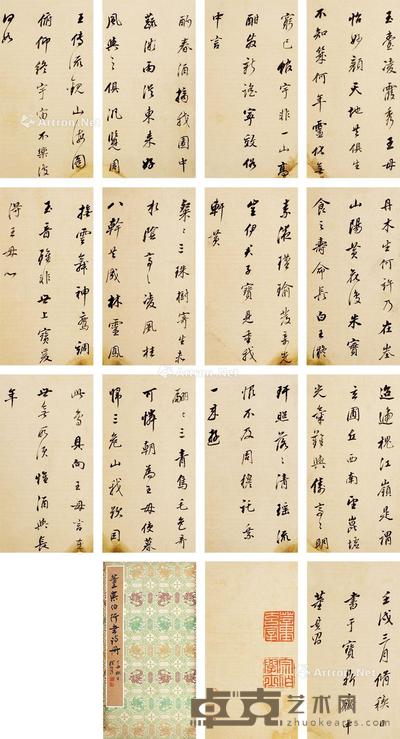 玉臺凌霞秀王母
怡妙顏天地共俱生
不知幾何年靈化無
窮已館宇非一山高
酣發新謠寧效俗
中言
酌春酒摘我園中
蔬微雨從東來好
風與之俱汎覽周
王傳流觀山海圖
俯仰終宇宙不樂復
何如
丹木生何許乃在峚
山陽黃花復朱實
食之壽命長白玉凝
素液瑾瑜發奇光
豈伊君子寶見重我
軒黃
粲〻三珠樹寄生赤
水陰亭〻凌風桂
八幹共成林靈鳳
撫雲舞神鸞調
玉音雖非世上寶爰
得王母心
迢遞槐江嶺是謂
玄圃丘西南望崑墟
光氣難與儔亭〻明
玕照落〻清瑤流
恨不及周穆託乘
一來遊
翩〻三青鳥毛色奇
可憐朝為王母使暮
歸三危山我欲因
此鳥具向王母言在
世無所須惟酒與長
年
壬戌三月脩禊日
書于寶鼎齋中
董其昌
董宗伯行書詩冊
卓克艺术网